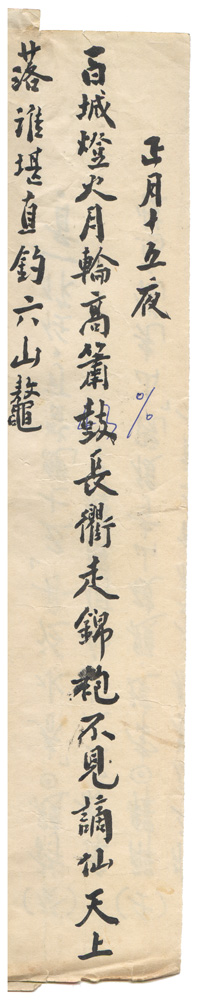 正月十五夜
百城燈火月輪高簫鼓長衢走錦袍不見謫仙天上
落誰堪直釣六山鼇
%